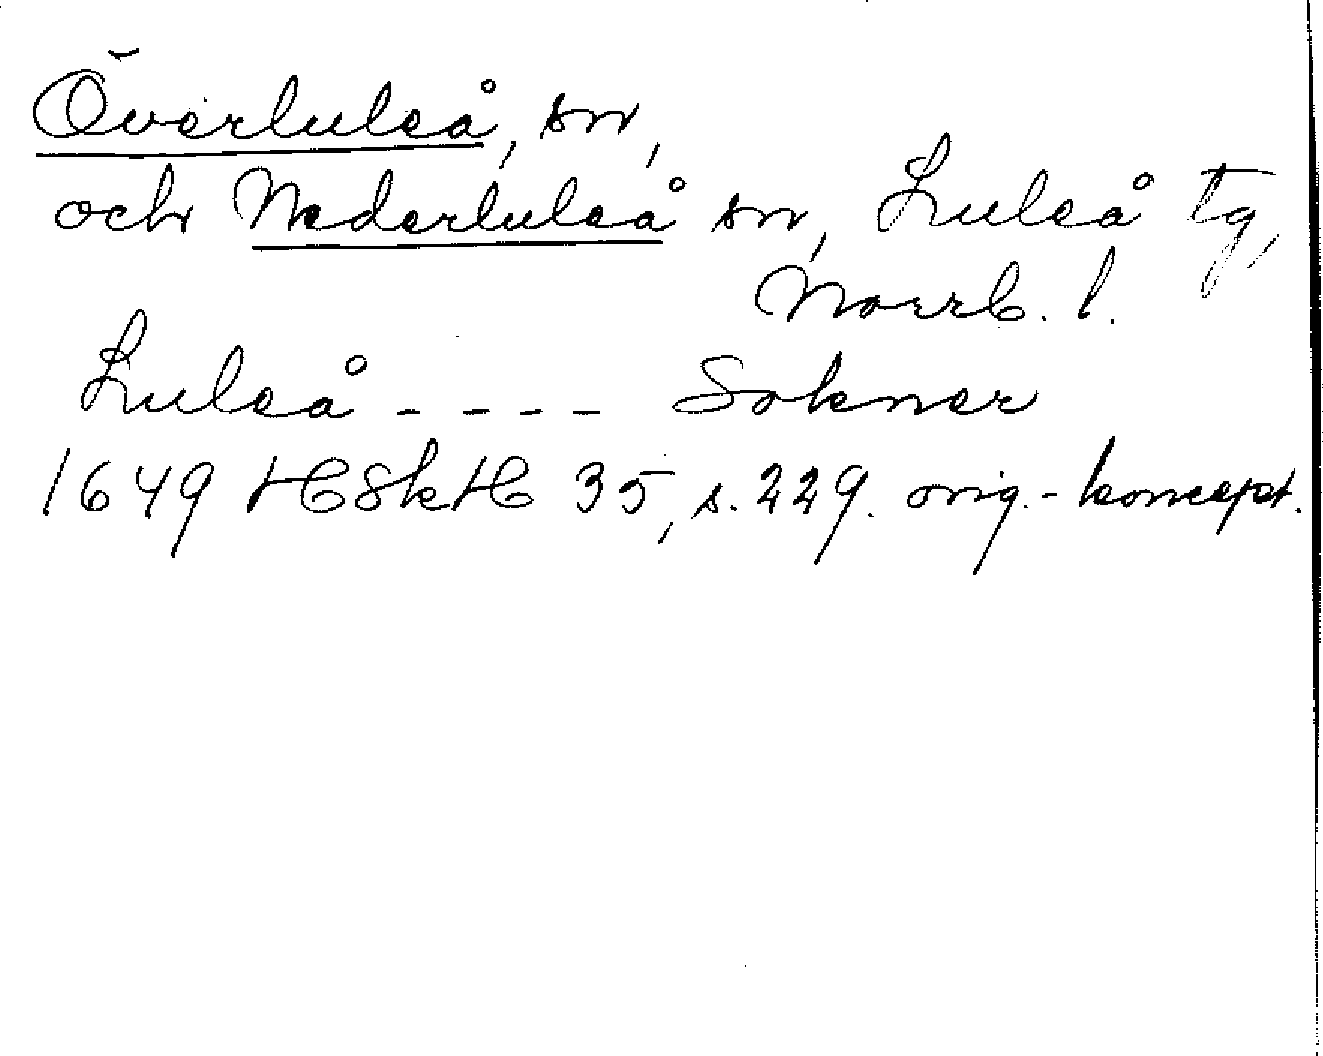 Överluleå, sn,
och Nederluleå sn, Luleå tg,
Norrb. l.
Luleå - - - - Sokner
1649 HSkH 35, s. 229. orig.-koncept.